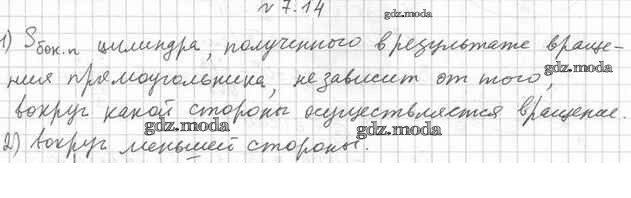 № 7.14
1) Sбок.п цилиндра, полученного в результате враще-
ния прямоугольника, не зависит от того,
вокруг какой стороны осуществляется вращение.
gdz.moda
gdz.moda
gdz.moda
2) вокруг меньшей стороны.
gdz.moda